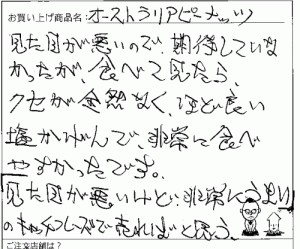 お買い上げ商品名:オーストラリアピーナッツ
見た目が悪いので、期待していな
かったが、食べて見たら、
クセが全然なく、ほど良い
塩かげんで、非常に食べ
やすかったです。
「見た目が悪いけど、非常にうまい」
のキャッチフレーズで売ればと思う。
ご注文店舗は?